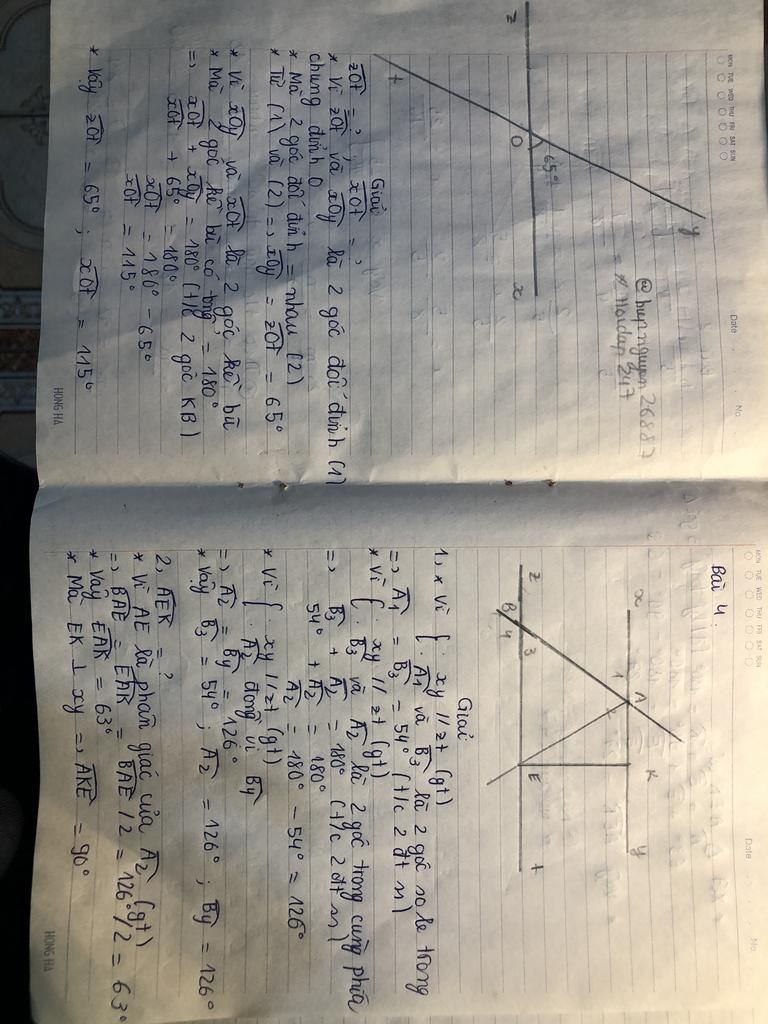 MON TUE WED THU FRI SAT SUN
Date
No.
@hiepnguyen26887
# Hoidap 247
z
t
O
65°
x
y
zOt = ? , xOt = ?
Giải
* Vì zOt và xOy là 2 góc đối đỉnh (1)
chung đỉnh O
* Mà 2 góc đối đỉnh = nhau (2)
* Từ (1) và (2) => xOy = zOt = 65°
* Vì xOy và xOt là 2 góc kề bù
* Mà 2 góc kề bù có tổng = 180°
=> xOt + xOy = 180° (t/c 2 góc KB)
xOt + 65° = 180°
xOt = 180° - 65°
xOt = 115°
* Vậy zOt = 65° ; xOt = 115°
HONG HA
MON TUE WED THU FRI SAT SUN
Date
No.
Bài 4:
x
1
A
2
K
y
z
B
4
3
E
t
Giải
1, * Vì { · xy // zt (gt)
· A1 và B3 là 2 góc so le trong
=> A1 = B3 = 54° (t/c 2 đt //)
* Vì { · xy // zt (gt)
· B3 và A2 là 2 góc trong cùng phía
=> B3 + A2 = 180° (t/c 2 đt //)
54° + A2 = 180°
A2 = 180° - 54° = 126°
* Vì { · xy // zt (gt)
· A2 đồng vị B4
=> A2 = B4 = 126°
* Vậy B3 = 54° ; A2 = 126° ; B4 = 126°
2, AEK = ?
* Vì AE là phân giác của A2 (gt)
=> BAE = EAK = BAE/2 = 126°/2 = 63°
* Vậy EAK = 63°
* Mà EK ⊥ xy => AKE = 90°
HONG HA